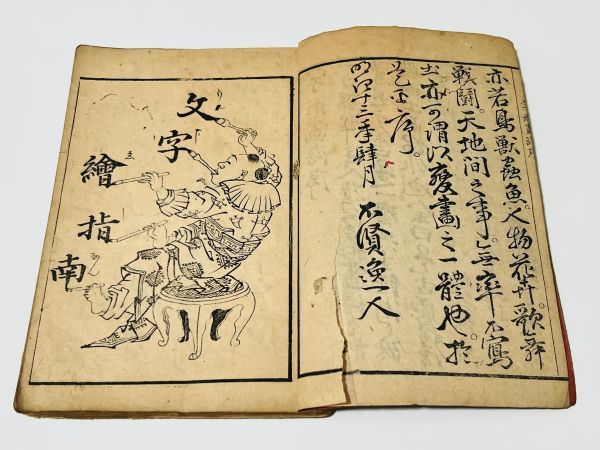 亦若鳥獸蟲魚。人物花卉。歌舞
戰鬪。天地間之事。無率不寫
出。亦可謂以發畫之一體也。於
是乎序。
明治十三季肆月　不賢漁人
文字
繪指南